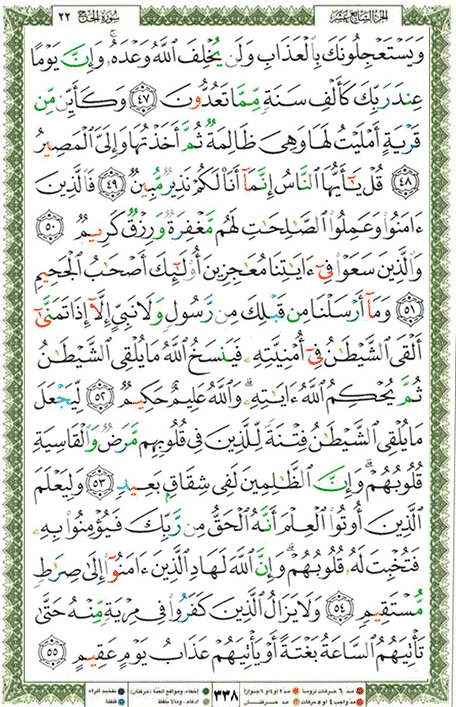 الجزء السابع عشر سورة الحج ٢٢
وَيَسْتَعْجِلُونَكَ بِٱلْعَذَابِ وَلَن يُخْلِفَ ٱللَّهُ وَعْدَهُۥ وَإِنَّ يَوْمًا
عِندَ رَبِّكَ كَأَلْفِ سَنَةٍ مِّمَّا تَعُدُّونَ ٤٧ وَكَأَيِّن مِّن
قَرْيَةٍ أَمْلَيْتُ لَهَا وَهِىَ ظَالِمَةٌ ثُمَّ أَخَذْتُهَا وَإِلَىَّ ٱلْمَصِيرُ
٤٨ قُلْ يَٰٓأَيُّهَا ٱلنَّاسُ إِنَّمَآ أَنَا۠ لَكُمْ نَذِيرٌ مُّبِينٌ ٤٩ فَٱلَّذِينَ
ءَامَنُوا۟ وَعَمِلُوا۟ ٱلصَّٰلِحَٰتِ لَهُم مَّغْفِرَةٌ وَرِزْقٌ كَرِيمٌ ٥٠
وَٱلَّذِينَ سَعَوْا۟ فِىٓ ءَايَٰتِنَا مُعَٰجِزِينَ أُو۟لَٰٓئِكَ أَصْحَٰبُ ٱلْجَحِيمِ
٥١ وَمَآ أَرْسَلْنَا مِن قَبْلِكَ مِن رَّسُولٍ وَلَا نَبِىٍّ إِلَّآ إِذَا تَمَنَّىٰٓ
أَلْقَى ٱلشَّيْطَٰنُ فِىٓ أُمْنِيَّتِهِۦ فَيَنسَخُ ٱللَّهُ مَا يُلْقِى ٱلشَّيْطَٰنُ
ثُمَّ يُحْكِمُ ٱللَّهُ ءَايَٰتِهِۦ وَٱللَّهُ عَلِيمٌ حَكِيمٌ ٥٢ لِّيَجْعَلَ
مَا يُلْقِى ٱلشَّيْطَٰنُ فِتْنَةً لِّلَّذِينَ فِى قُلُوبِهِم مَّرَضٌ وَٱلْقَاسِيَةِ
قُلُوبُهُمْ وَإِنَّ ٱلظَّٰلِمِينَ لَفِى شِقَاقٍۭ بَعِيدٍ ٥٣ وَلِيَعْلَمَ
ٱلَّذِينَ أُوتُوا۟ ٱلْعِلْمَ أَنَّهُ ٱلْحَقُّ مِن رَّبِّكَ فَيُؤْمِنُوا۟ بِهِۦ
فَتُخْبِتَ لَهُۥ قُلُوبُهُمْ وَإِنَّ ٱللَّهَ لَهَادِ ٱلَّذِينَ ءَامَنُوٓا۟ إِلَىٰ صِرَٰطٍ
مُّسْتَقِيمٍ ٥٤ وَلَا يَزَالُ ٱلَّذِينَ كَفَرُوا۟ فِى مِرْيَةٍ مِّنْهُ حَتَّىٰ
تَأْتِيَهُمُ ٱلسَّاعَةُ بَغْتَةً أَوْ يَأْتِيَهُمْ عَذَابُ يَوْمٍ عَقِيمٍ ٥٥
مد ٦ حركات لزوما مد ٢ أو ٤ أو ٦ جوازا ٣٣٨ إخفاء، ومواقع الغنة (حركتان) تفخيم الراء
مد واجب ٤ أو ٥ حركات مد حركتان إدغام، وما لا يلفظ قلقلة